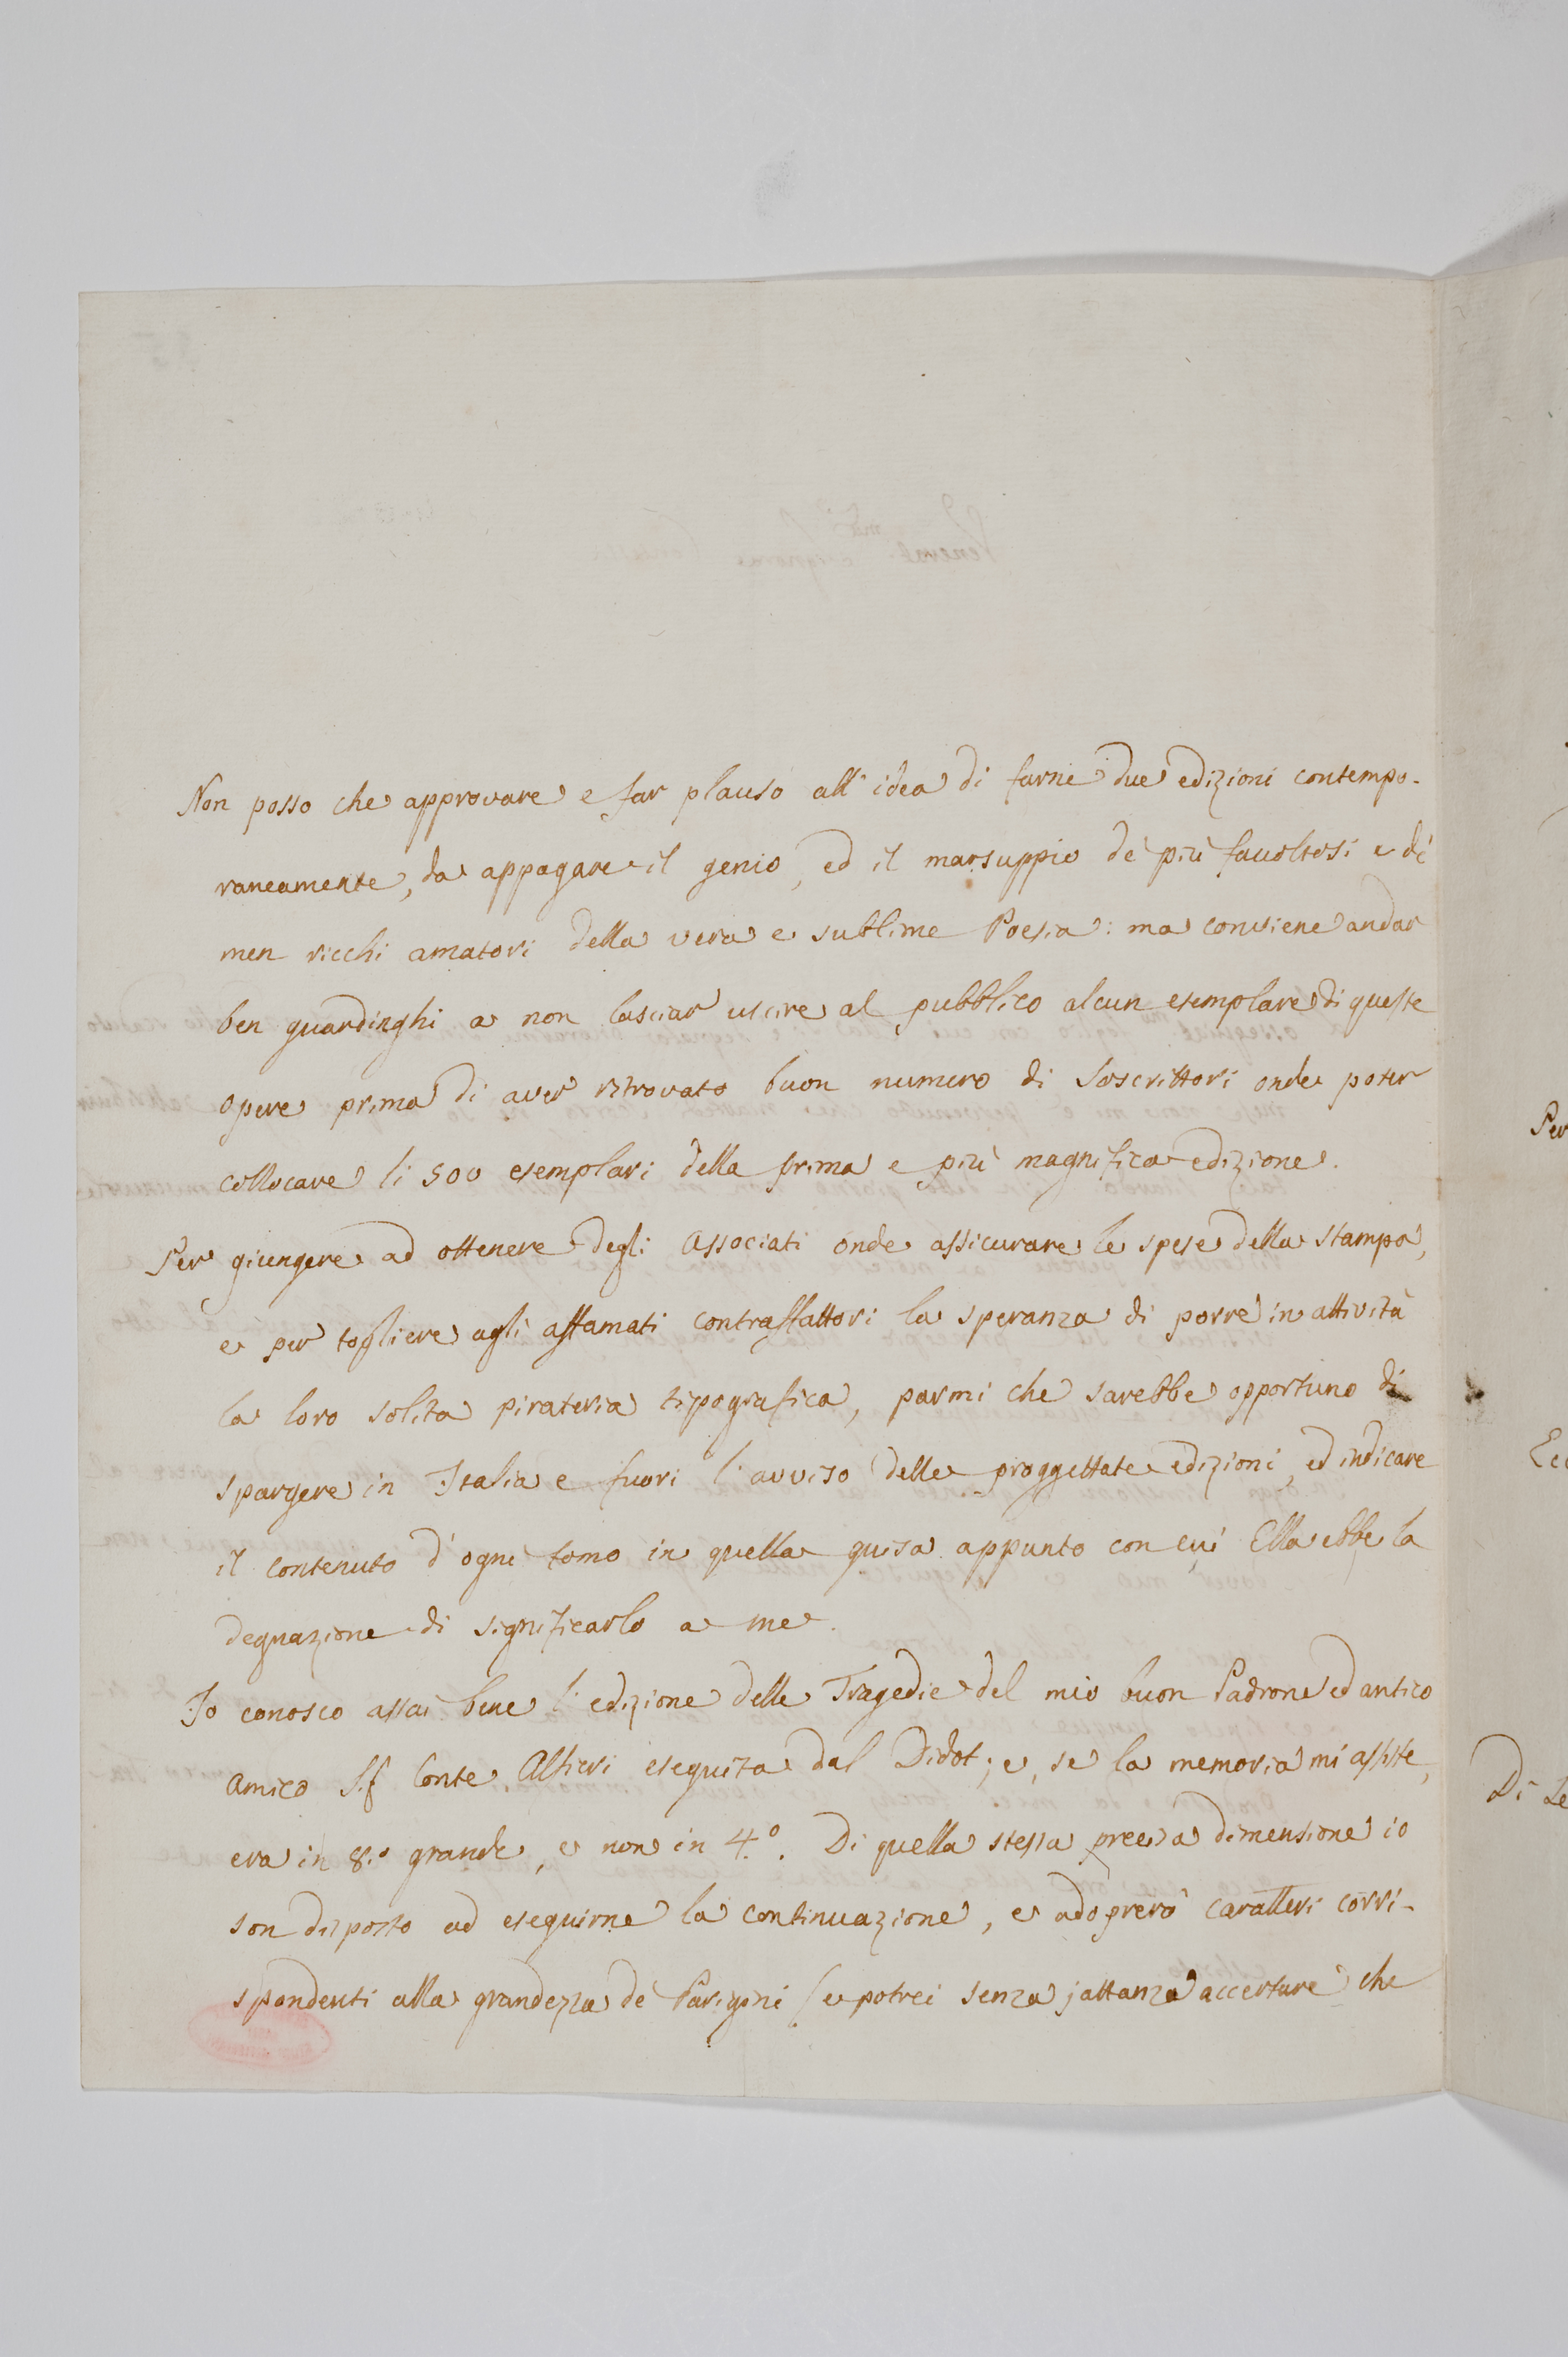 Non posso che approvare e far plauso all'idea di farne due edizioni contempo-
raneamente, da appagare il genio, ed il marsuppio de' più facoltosi e de'
men ricchi amatori della vera e sublime Poesia: ma conviene andar
ben guardinghi a non lasciar uscire al pubblico alcun esemplare di queste
opere prima di aver ritrovato buon numero di Soscrittori onde poter
collocare li 500 esemplari della prima e più magnifica edizione.
Per giungere ad ottenere degli Associati onde assicurare le spese della stampa,
e per togliere agli affamati contraffattori la speranza di porre in attività
la loro solita pirateria tipografica, parmi che sarebbe opportuno di
spargere in Italia e fuori l'avviso delle proggettate edizioni, ed indicare
il contenuto d'ogni tomo in quella guisa appunto con cui Ella ebbe la
degnazione di significarlo a me.
Io conosco assai bene l'edizione delle Tragedie del mio buon Padrone ed antico
amico Conte Alfieri eseguita dal Didot; e, se la memoria mi assiste,
era in 8.º grande, e non in 4.º. Di quella stessa precisa dimensione io
son disposto ad eseguirne la continuazione, e adoprerò caratteri corri-
spondenti alla grandezza de' Parigini (e potrei senza jattanza accertare che
Per
Di